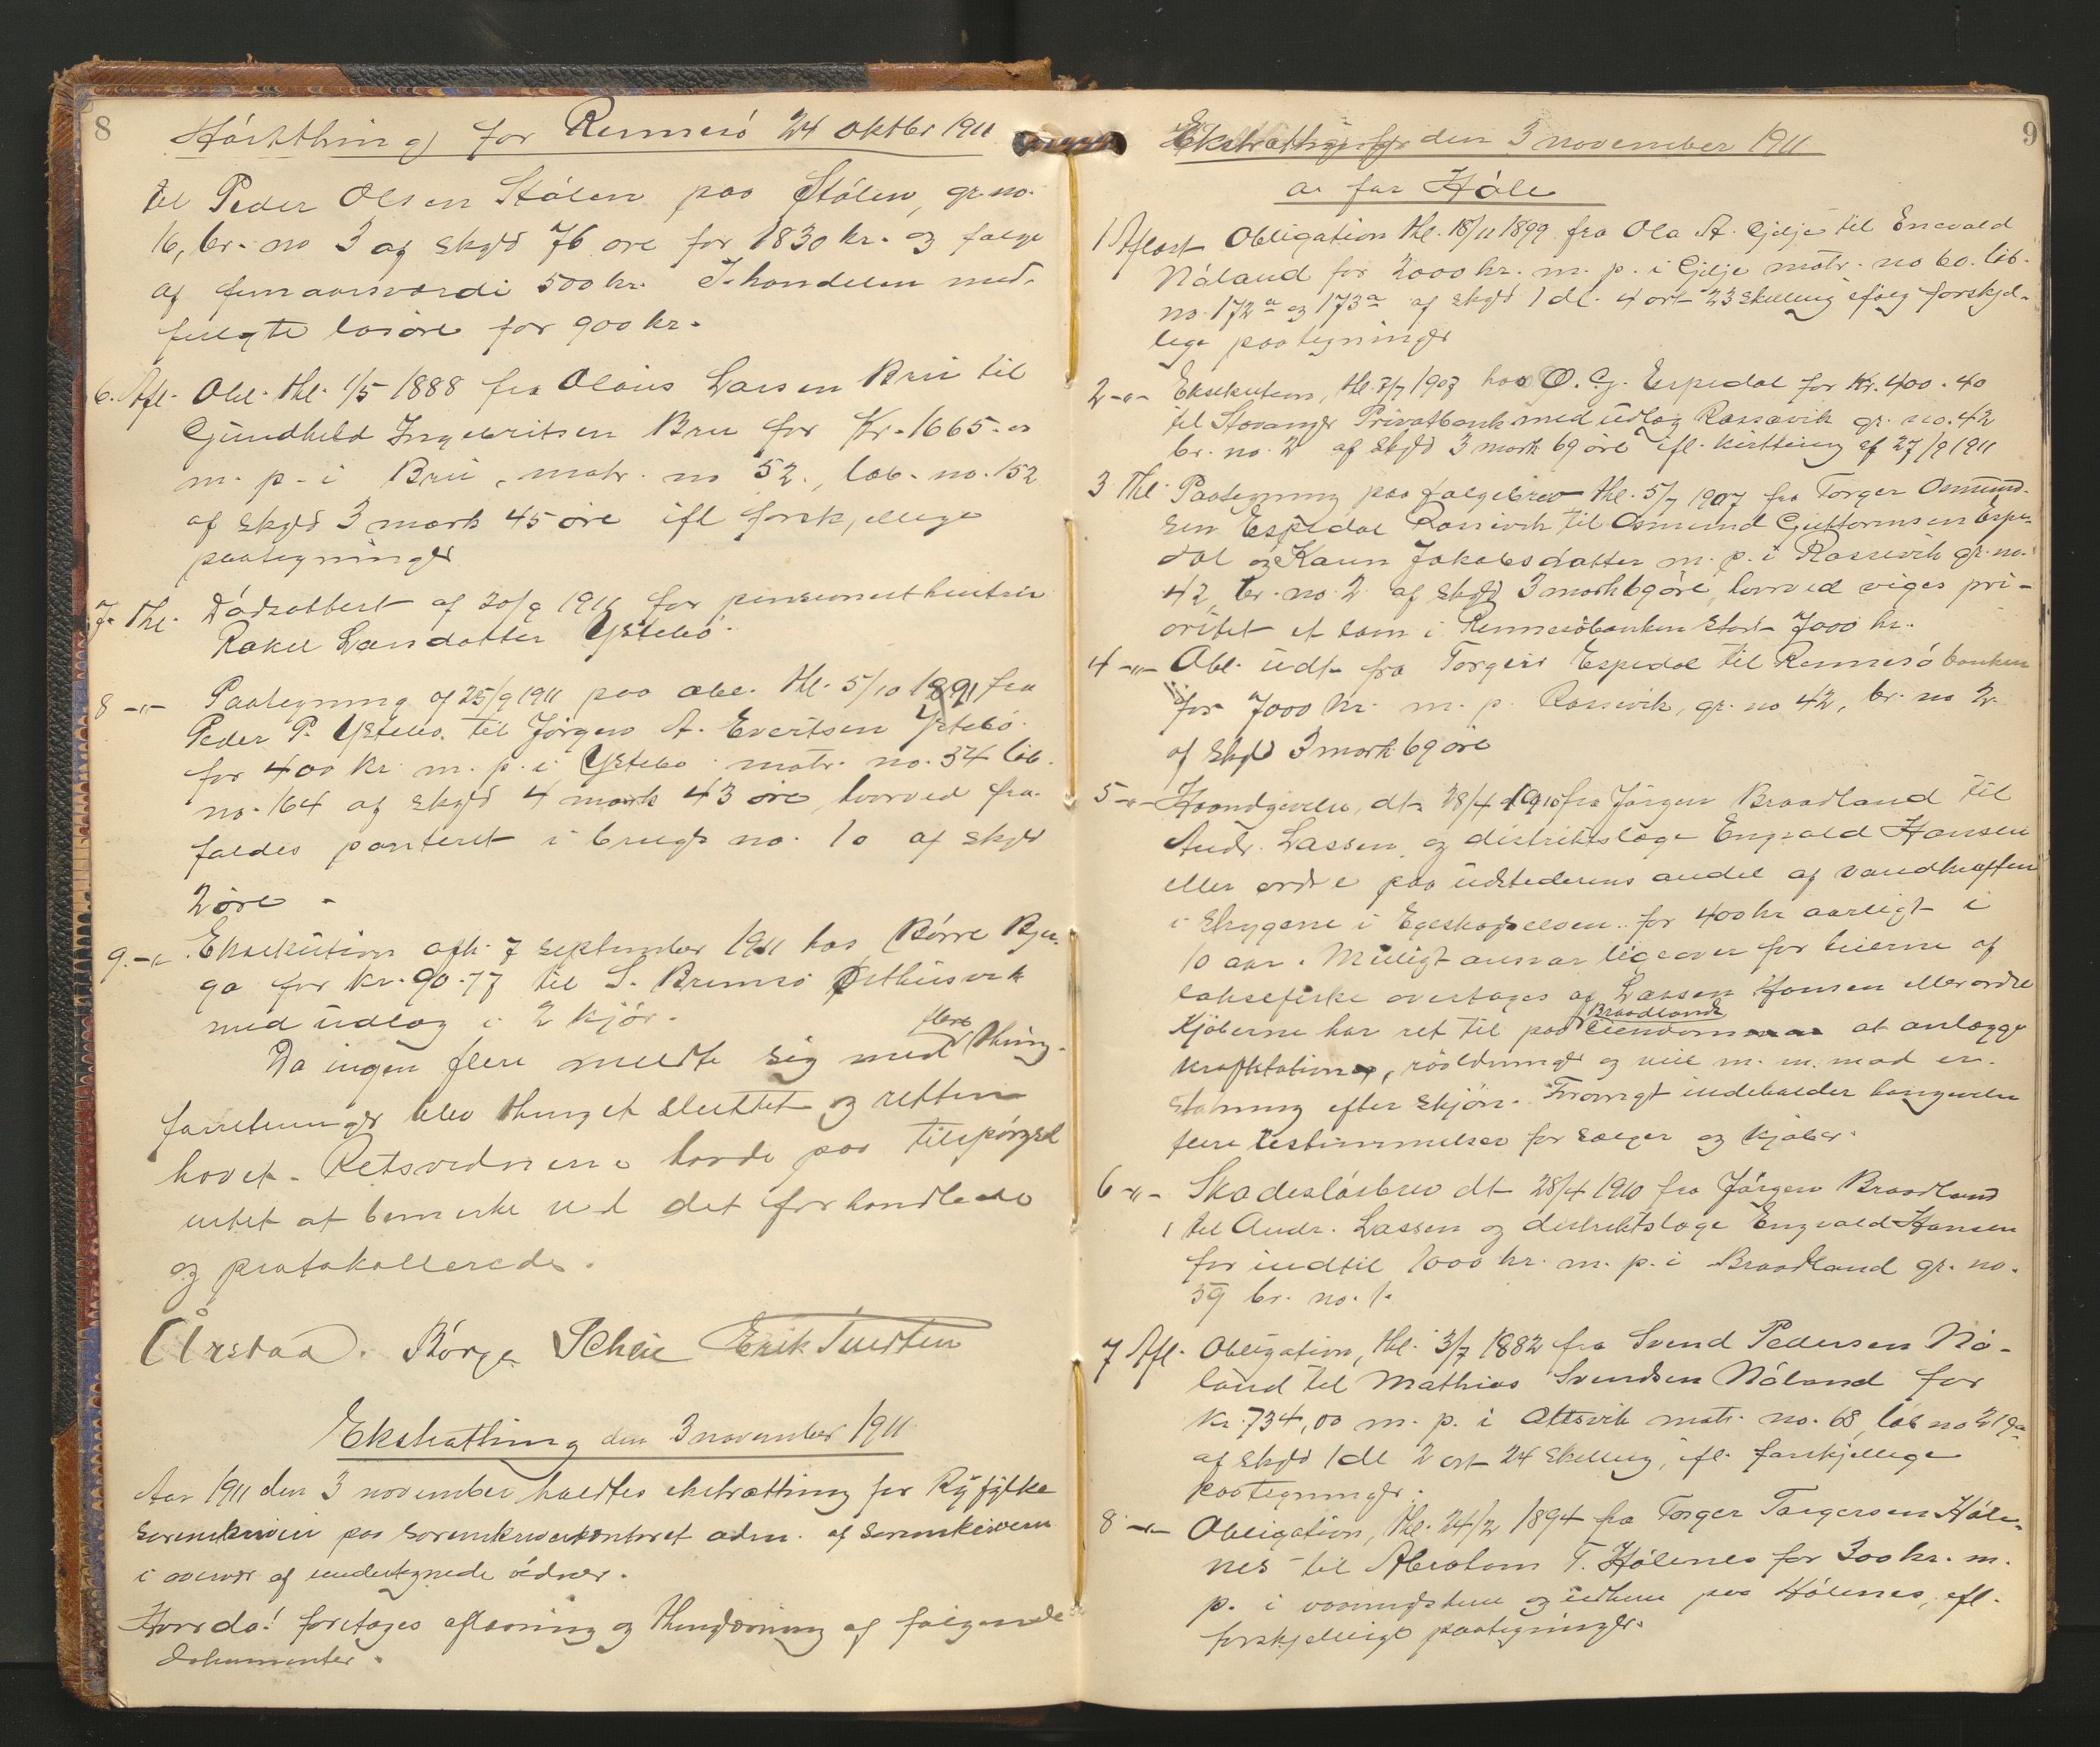 8
Høstthing for Rennesø 24 oktbr 1911
til Peder Olsen Stølen paa Stølen, gr. no.
16, br. no 3 af skyld 76 øre for 1830 kr. og følge
af femaarsværdi 500 kr. I handelen med-
fulgte løsøre for 900 kr.
6. Afl. Obl. thl. 1/5 1888 fra Olaus Larsen Bru til
Gundhild Ingebritsen Bru for Kr. 1665.00
m. p. i Bru, matr. no 52, løb. no. 152
af skyld 3 mark 45 øre ifl forskjellige
paategninger
7. Thl. Dødsattest af 20/9 1911 for
Rakel Larsdatter Ystebø.
8 -"- Paategning af 25/9 1911 paa obl. thl. 5/10 1891 fra
Peder P. Ystebø til Jørgen A. Evertsen Ystebø
for 400 kr m. p. i Ystebø matr. no. 34 løb.
no. 164 af skyld 4 mark 43 øre, hvorved fra-
faldes panteret i brugs no. 10 af skyld
2 øre.
9. -"- Eksekution afh. 7 september 1911 hos Børre
ga for kr. 90.77 til S. Brimsø Østhusvik
med udlæg i 2 kjør.
flere
Da ingen flere meldte sig med thing-
forretninger blev thinget sluttet og retten
hævet. Retsvidnerne havde paa tilspørgsel
intet at bemerke ved det forhandlede
og protokollerede.
Årstad. Børge Scheie Erik Tuesten
Ekstrathing den 3 november 1911
Aar 1911 den 3 november holdtes ekstrathing for Ryfylke
sorenskriveri paa sorenskriverkontoret adm. af sorenskriveren
i overvær af undertegnede vidner.
Hvorda! foretages aflæsning og thinglæsning af følgende
dokumenter.
9
Ekstrathing for den 3 november 1911
a. for Høle
1 Aflæst Obligation thl. 18/11 1899 fra Ola A. Gjilje til Enevald
Nåland for 2000 kr. m. p. i Gilje matr. no 60. løb.
no. 172a og 173a af skyld 1 dl. 4 ort 23 skilling ifølg forskjel-
lige paategninger
2 -"- Eksekution, thl. 7/7 1907 hos O. G. Espedal for Kr. 400.40
til Stavanger Privatbank med udlæg Rossavik gr. no. 42
br. no. 2 af skyld 3 mark 69 øre ifl. kvittering af 27/9 1911
3 Thl. Paategning paa følgebrev thl. 5/7 1907 fra Torger Osmund-
sen Espedal Rossivik til Osmund Guttormsen Espe-
dal og Karen Jakobsdatter m. p. i Rossevik gr. no.
42, br. no. 2 af skyld 3 mark 69 øre, hvorved viges pri-
oritet et laan i Rennesøbanken stort 7000 kr.
4 -"- Obl. udt. fra Torgeir Espedal til Rennesøbanken
for 7000 kr. m. p. Rossivik, gr. no 42, br. no 2
af skyld 3 mark 69 øre
5 -"- Haandgivelse, dt. 28/4 1910 fra Jørgen Braadland til
Andr. Lassen og distriktslæge Engvald Hansen
eller ordre paa udstederens andel af vandkraften
i strygene i for 400 kr aarligt i
10 aar. Muligt ansvar ligeover for eierne af
laksefiske overtages af Lassen Hansen eller ordre
Braadlands
Kjøberne har ret til paa eiendom at anlægge
kraftstation, rørledninger og veie m. m. mod er-
statning efter skjøn. Forøvrigt indeholder haandgivelsen
flere bestemmelser for sælger og kjøber.
6 -"- Skadesløsbrev dt 28/4 1910 fra Jørgen Braadland
til Andr. Lassen og distriktslæge Engvald Hansen
for indtil 1000 kr. m. p. i Braadland gr. no.
59 br. no. 1.
7 Afl. Obligation, thl. 3/7 1882 fra Svend Pedersen Nø-
land til Mathias Svendsen Nåland for
kr. 734,00 m. p. i Oltsvik matr. no. 68, løb no
af skyld 1 dl 2 ort 24 skilling, ifl. forskjellige
paategninger.
8 -"- Obligation, thl. 24/2 1894 fra Torger Torgersen Høle-
nes til Abraham T. Hølenes for 300 kr. m.
p. i vaaningshus og udhus paa Hølenes, ifl.
forskjellige paategninger.